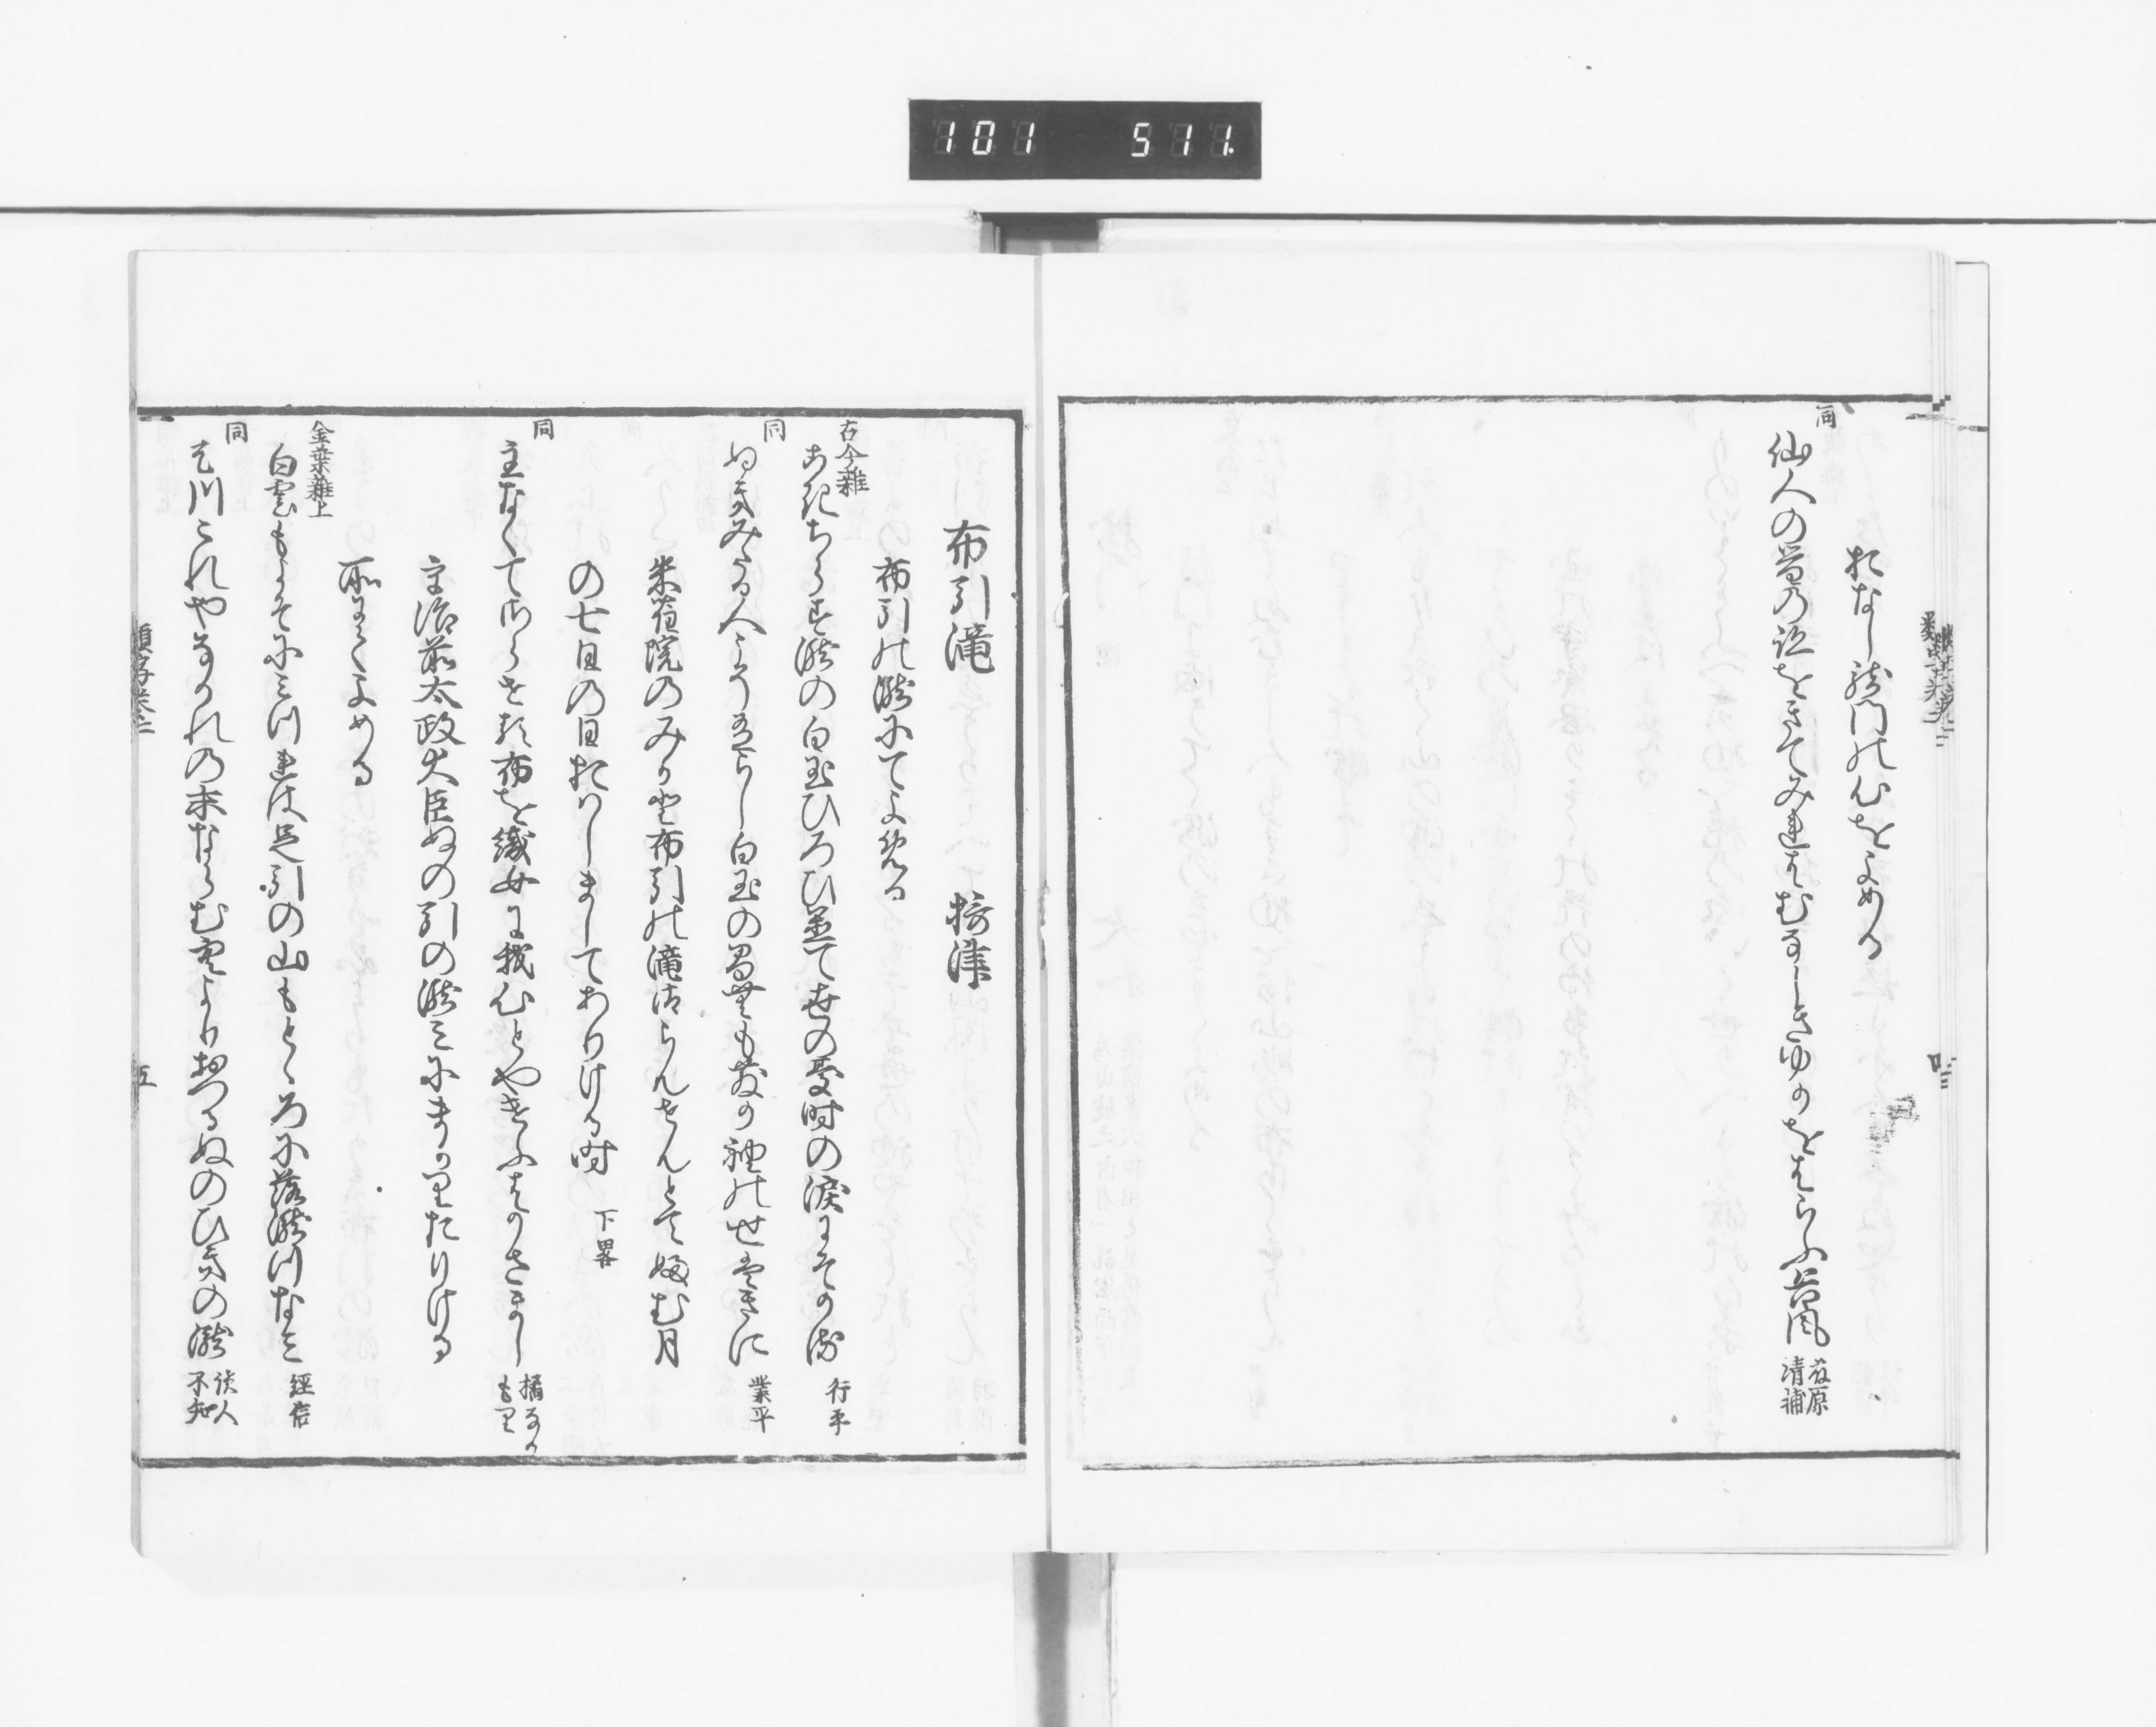 101 511.
おなし龍門の心をよめる
同
仙人の昔の跡をきてみれはむなしきゆかをはらふ谷風 藤原清輔
布引滝 摂津
布引の滝にてよめる
古今雑
こきちらす滝の白玉ひろひ置て世の憂時の涙にそかる 行平
同
ぬきみたる人こそ有らし白玉の間無もちるか袖のせはきに 業平
朱雀院のみかと布引の滝御らんせんとて文月
の七日の日おはしましてありける時 下畧
同
主なくてさらせる布を織女に我心とやけふはかさまし 橘なかもり
宇治前太政大臣ぬの引の滝みにまかりたりける
所にてよめる
金葉雑上
白雲もよそにみつれは足引の山もとゝろに落滝川なみ 經信
同
天川これやなかれの末ならむ空より落るぬのひきの滝 読人不知
類字巻二
五